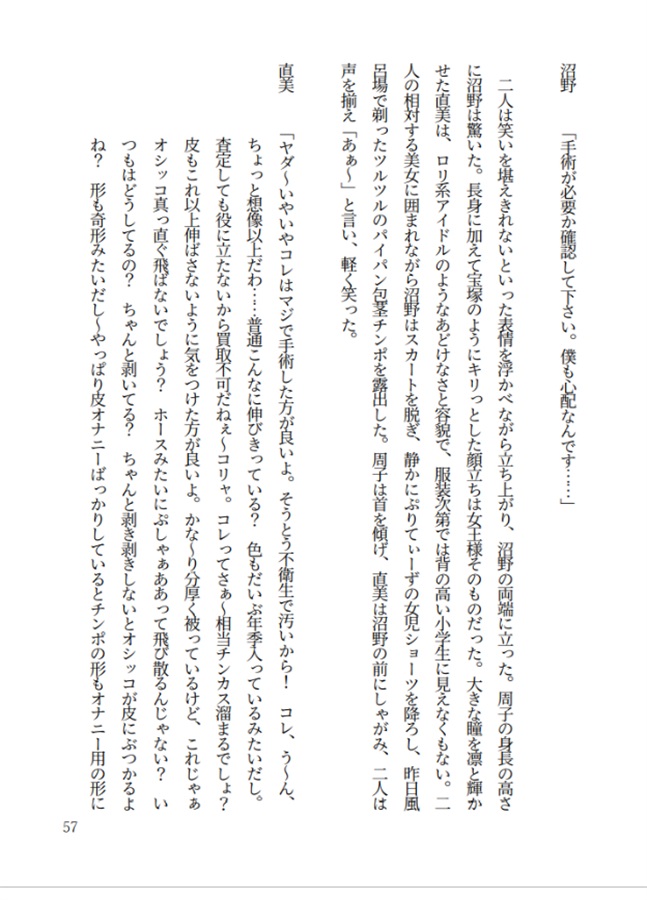 沼野　「手術が必要か確認して下さい。僕も心配なんです……」
二人は笑いを堪えきれないといった表情を浮かべながら立ち上がり、沼野の両端に立った。周子の身長の高さ
に沼野は驚いた。長身に加えて宝塚のようにキリっとした顔立ちは女王様そのものだった。大きな瞳を凛と輝か
せた直美は、ロリ系アイドルのようなあどけなさと容貌で、服装次第では背の高い小学生に見えなくもない。二
人の相対する美女に囲まれながら沼野はスカートを脱ぎ、静かにぷりてぃーずの女児ショーツを降ろし、昨日風
呂場で剃ったツルツルのパイパン包茎チンポを露出した。周子は首を傾げ、直美は沼野の前にしゃがみ、二人は
声を揃え「あぁ～」と言い、軽く笑った。
直美　「ヤダ～いやいやコレはマジで手術した方が良いよ。そうとう不衛生で汚いから！　コレ、う～ん、
ちょっと想像以上だわ……普通こんなに伸びきっている？　色もだいぶ年季入っているみたいだし。
査定しても役に立たないから買取不可だねぇ～コリャ。コレってさぁ～相当チンカス溜まるでしょ？
皮もこれ以上伸ばさないように気をつけた方が良いよ。かな～り分厚く被っているけど、これじゃぁ
オシッコ真っ直ぐ飛ばないでしょう？　ホースみたいにぷしゃぁああって飛び散るんじゃない？　い
つもはどうしてるの？　ちゃんと剥いてる？　ちゃんと剥き剥きしないとオシッコが皮にぶつかるよ
ね？　形も奇形みたいだし～やっぱり皮オナニーばっかりしているとチンポの形もオナニー用の形に
57